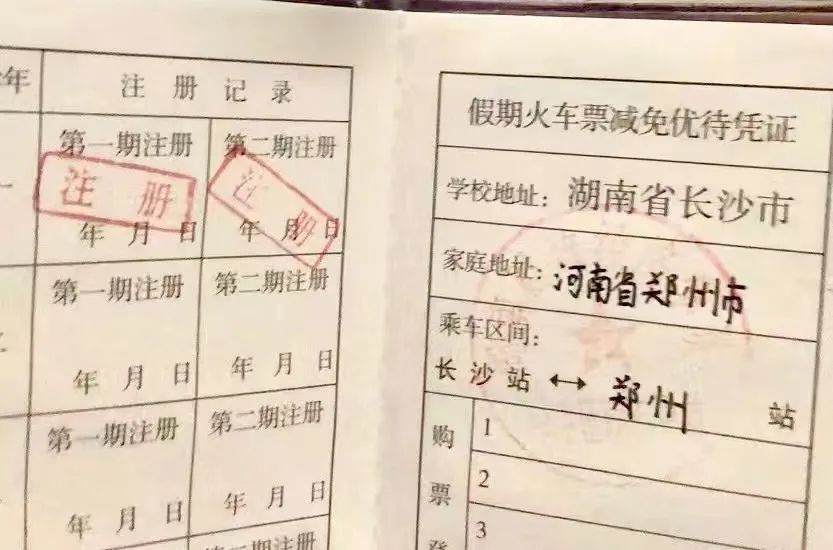 年
注 册 记 录
第一期注册
第二期注册
注 册
注 册
年 月 日
年 月 日
第一期注册
第二期注册
年 月 日
年 月 日
第一期注册
第二期注册
年 月 日
年 月 日
假期火车票减免优待凭证
学校地址：湖南省长沙市
家庭地址：河南省郑州市
乘车区间：
长沙站 ↔ 郑州 站
购票登
1
2
3